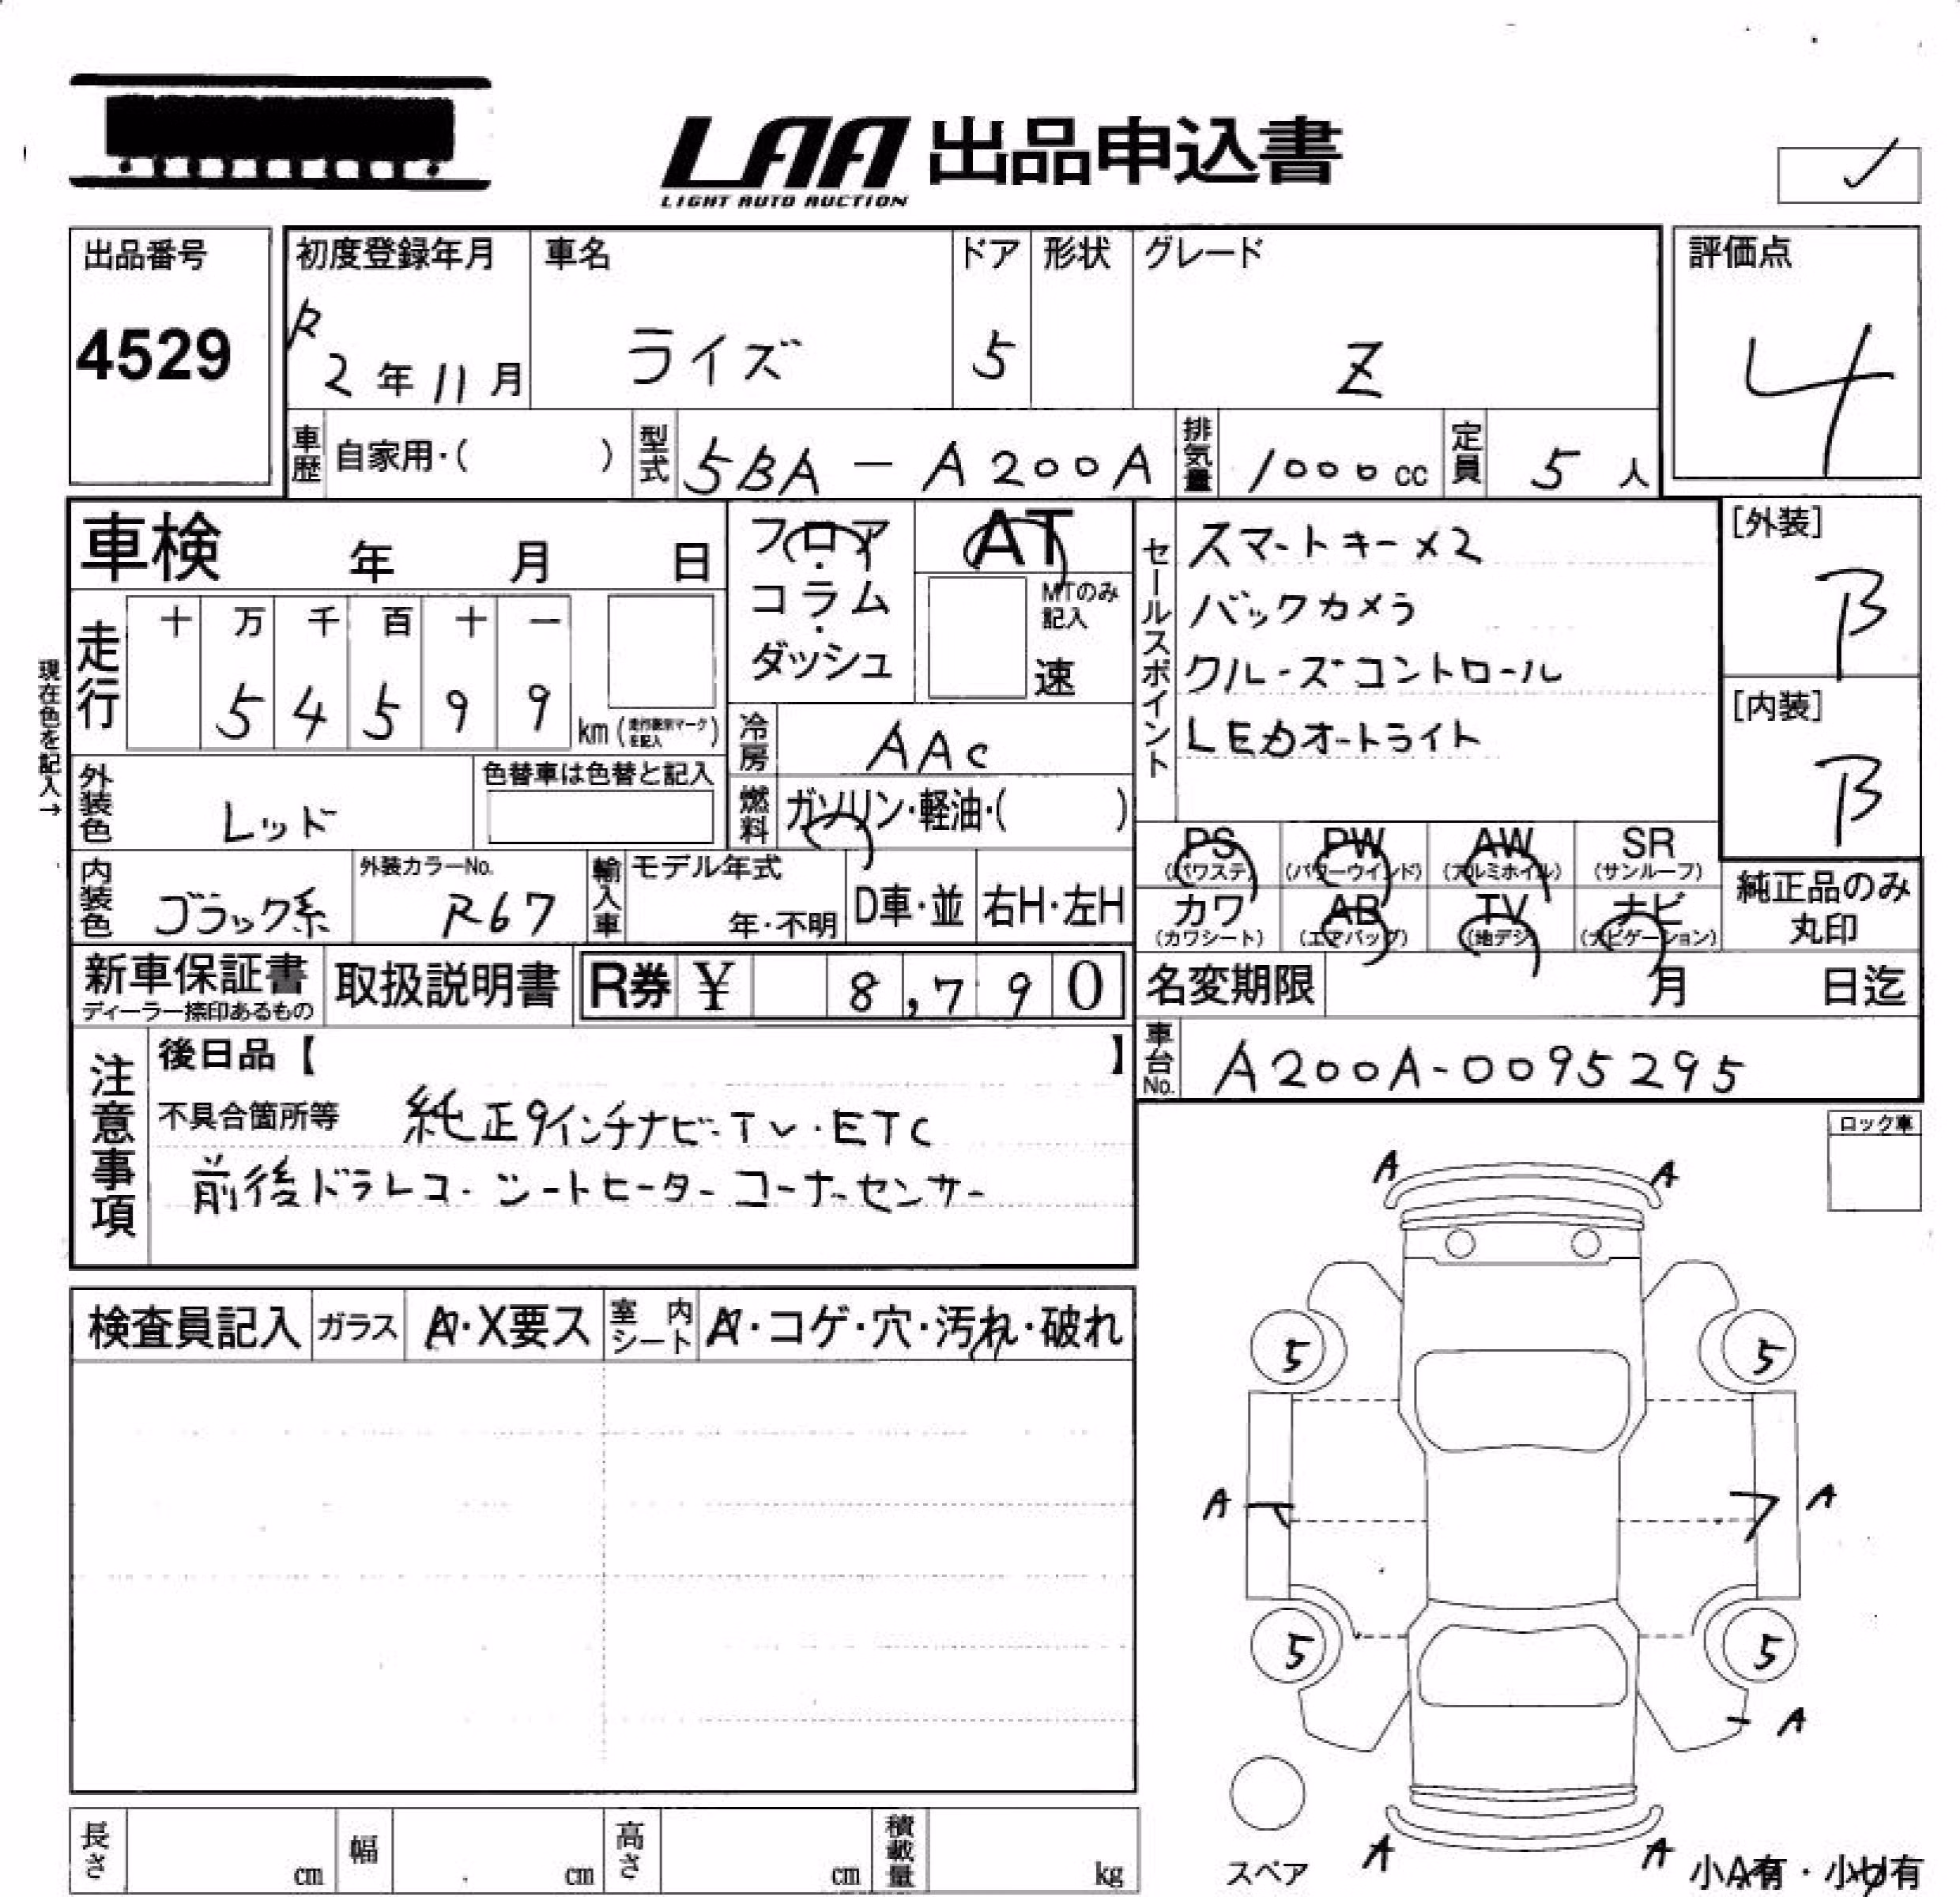 LAA 出品申込書
LIGHT AUTO AUCTION
出品番号
4529
初度登録年月
R
2年11月
車名
ライズ
ドア
5
形状
グレード
Z
評価点
4
車歴 自家用・( )
型式 5BA-A200A
排気量 1000cc
定員 5人
車検 年 月 日
フロア・コラム・ダッシュ
AT
MTのみ記入
速
現在色を記入→
走行
十 万 千 百 十 一
5 4 5 9 9
km
冷房 AAC
外装色 レッド
色替車は色替と記入
燃料 ガソリン・軽油・( )
内装色 ブラック系
外装カラーNo.
R67
輸入車 モデル年式
年・不明
D車・並
右H・左H
新車保証書
ディーラー捺印あるもの
取扱説明書
R券 ¥ 8,790
セールスポイント
スマートキー×2
バックカメラ
クルーズコントロール
LEDオートライト
[外装]
B
[内装]
B
PS (パワステ)
PW (パワーウインド)
AW (アルミホイル)
SR (サンルーフ)
カワ (カワシート)
AB (エアバッグ)
TV (地デジ)
ナビ (ナビゲーション)
純正品のみ
丸印
名変期限 月 日迄
車台No. A200A-0095295
注意事項
後日品【 】
不具合箇所等 純正9インチナビ・TV・ETC
前後ドラレコ・シートヒーター コーナーセンサー
ロック車
検査員記入
ガラス A・X要ス
室内シート A・コゲ・穴・汚れ・破れ
A A
5 5
A A
5 5
A
スペア
A A
小A有・小U有
長さ cm
幅 cm
高さ cm
積載量 kg